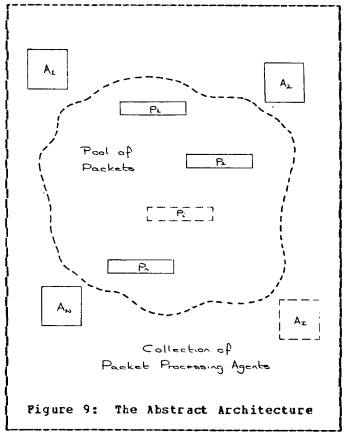 A1 A2
P1
Pool of
Packets
P2
Pi
Pn
AN AI
Collection of
Packet Processing Agents
Figure 9: The Abstract Architecture